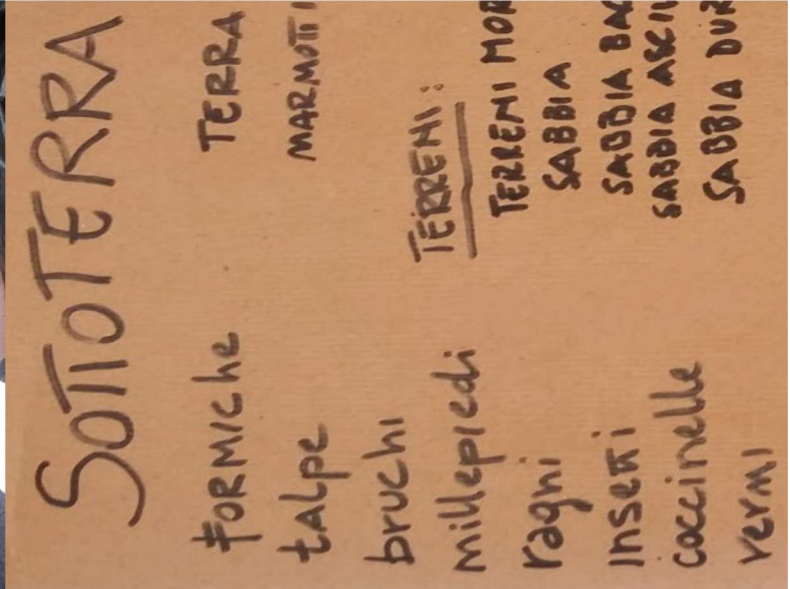 SOTTOTERRA
FORMICHE
talpe
bruchi
millepiedi
ragni
insetti
coccinelle
vermi
TERRA
MARMOTTI
TERRENI:
TERRENI MOR
SABBIA
SABBIA BAG
SABBIA ASCIU
SABBIA DUR